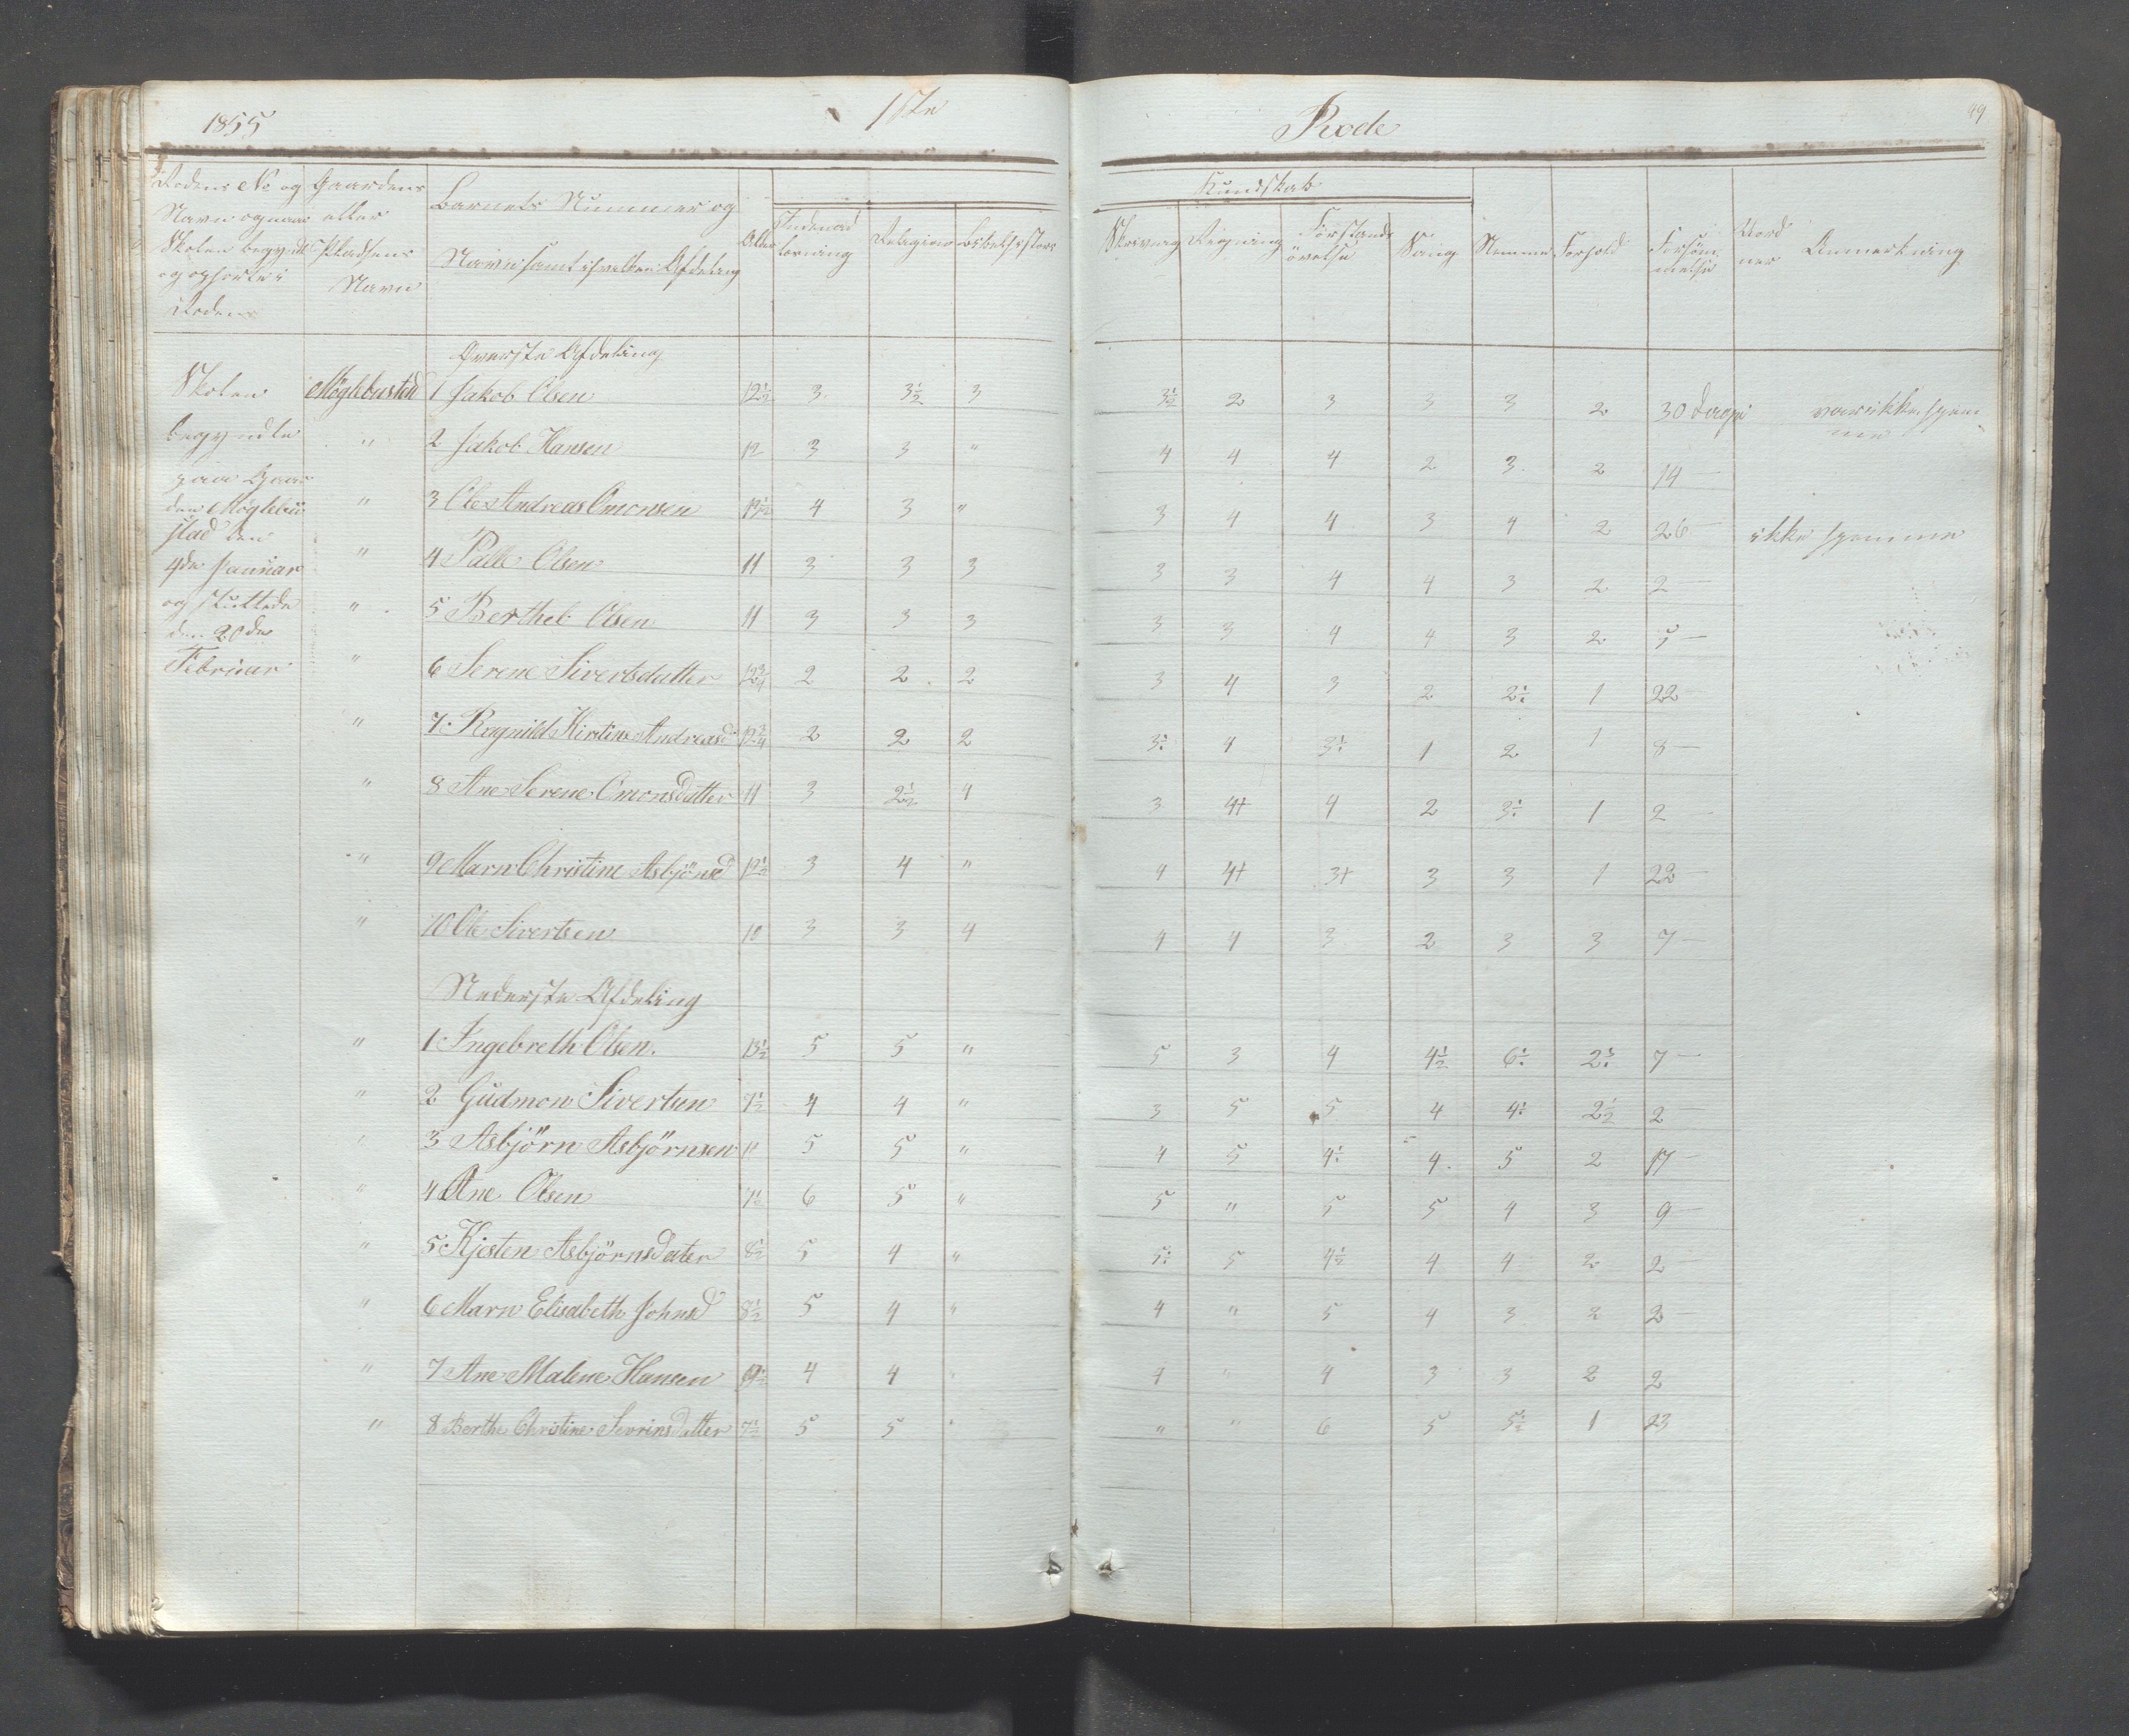 1855 1ste Rode 49
Rodens No og Navn og naar Skolen begyndte og ophørte i Roden
Gaardens eller Pladsens Navn
Barnets Nummer og Navn samt i hvilken Afdeling
Alder
Kundskab
Religion Bibelhistorie
Skrivning Regning Forstands övelse Sang Nemme Forhold Forsöm melse Anmerkning
Øverste Afdeling
Skolen begyndte paa Gaar den Möglebu stad den 4de Januar og sluttede den 20de Februar
Möglebustad 1 Jakob Olsen 12½ 3 3½ 3 3½ 2 3 3 3 2 30 Dage var ikke hjem me
" 2 Jakob Hansen 12 3 3 " 4 4 4 2 3 2 14 —
" 3 Ole Andreas Omonsen 4 3 " 3 4 4 3 4 2 26 — ikke hjemme
" 4 Palle Olsen 11 3 3 3 3 3 4 4 3 2 2 —
" 5 Berthel Olsen 11 3 3 3 3 3 4 4 3 2 5 —
" 6 Serene Sivertsdatter 12¾ 2 2 2 3 4 3 2 2½ 1 22 —
" 7 Ragnild Kirstine Andreasd 12¾ 2 2 2 3½ 4 3½ 1 2 1 8 —
" 8 Ane Serene Omonsdatter 11 3 2½ 4 3 4+ 4 2 3½ 1 2 —
" 9 Marn Christine Asbjönsd 12½ 3 4 " 4 4+ 3+ 3 3 1 22 —
" 10 Ole Sivertsen 10 3 3 4 4 4 3 2 3 3 7 —
Nederste Afdeling
" 1 Ingebreth Olsen. 13½ 5 5 " 5 3 4 4½ 6½ 2½ 7 —
" 2 Gudmon Sivertsen 7½ 4 4 " 3 5 5 4 4½ 2½ 2 —
" 3 Asbjörn Asbjörnsen 11 5 5 " 4 5 4½ 4 5 2 17 —
" 4 Ane Olsen 7½ 6 5 " 5 " 5 5 4 3 9 —
" 5 Kjesten Asbjörnsdater 8½ 5 4 " 5½ 5 4½ 4 4 2 2 —
" 6 Marn Elisabeth Johnsd 8½ 5 4 " 4 " 5 4 3 2 2 —
" 7 Ane Malene Hansen 9½ 4 4 " 4 " 4 3 3 2 2
" 8 Berthe Christine Sevrinsdatter 7½ 5 5 " " " 6 5 5½ 1 23